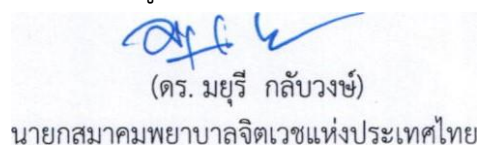 (ดร. มยุรี กลับวงษ์)
นายกสมาคมพยาบาลจิตเวชแห่งประเทศไทย